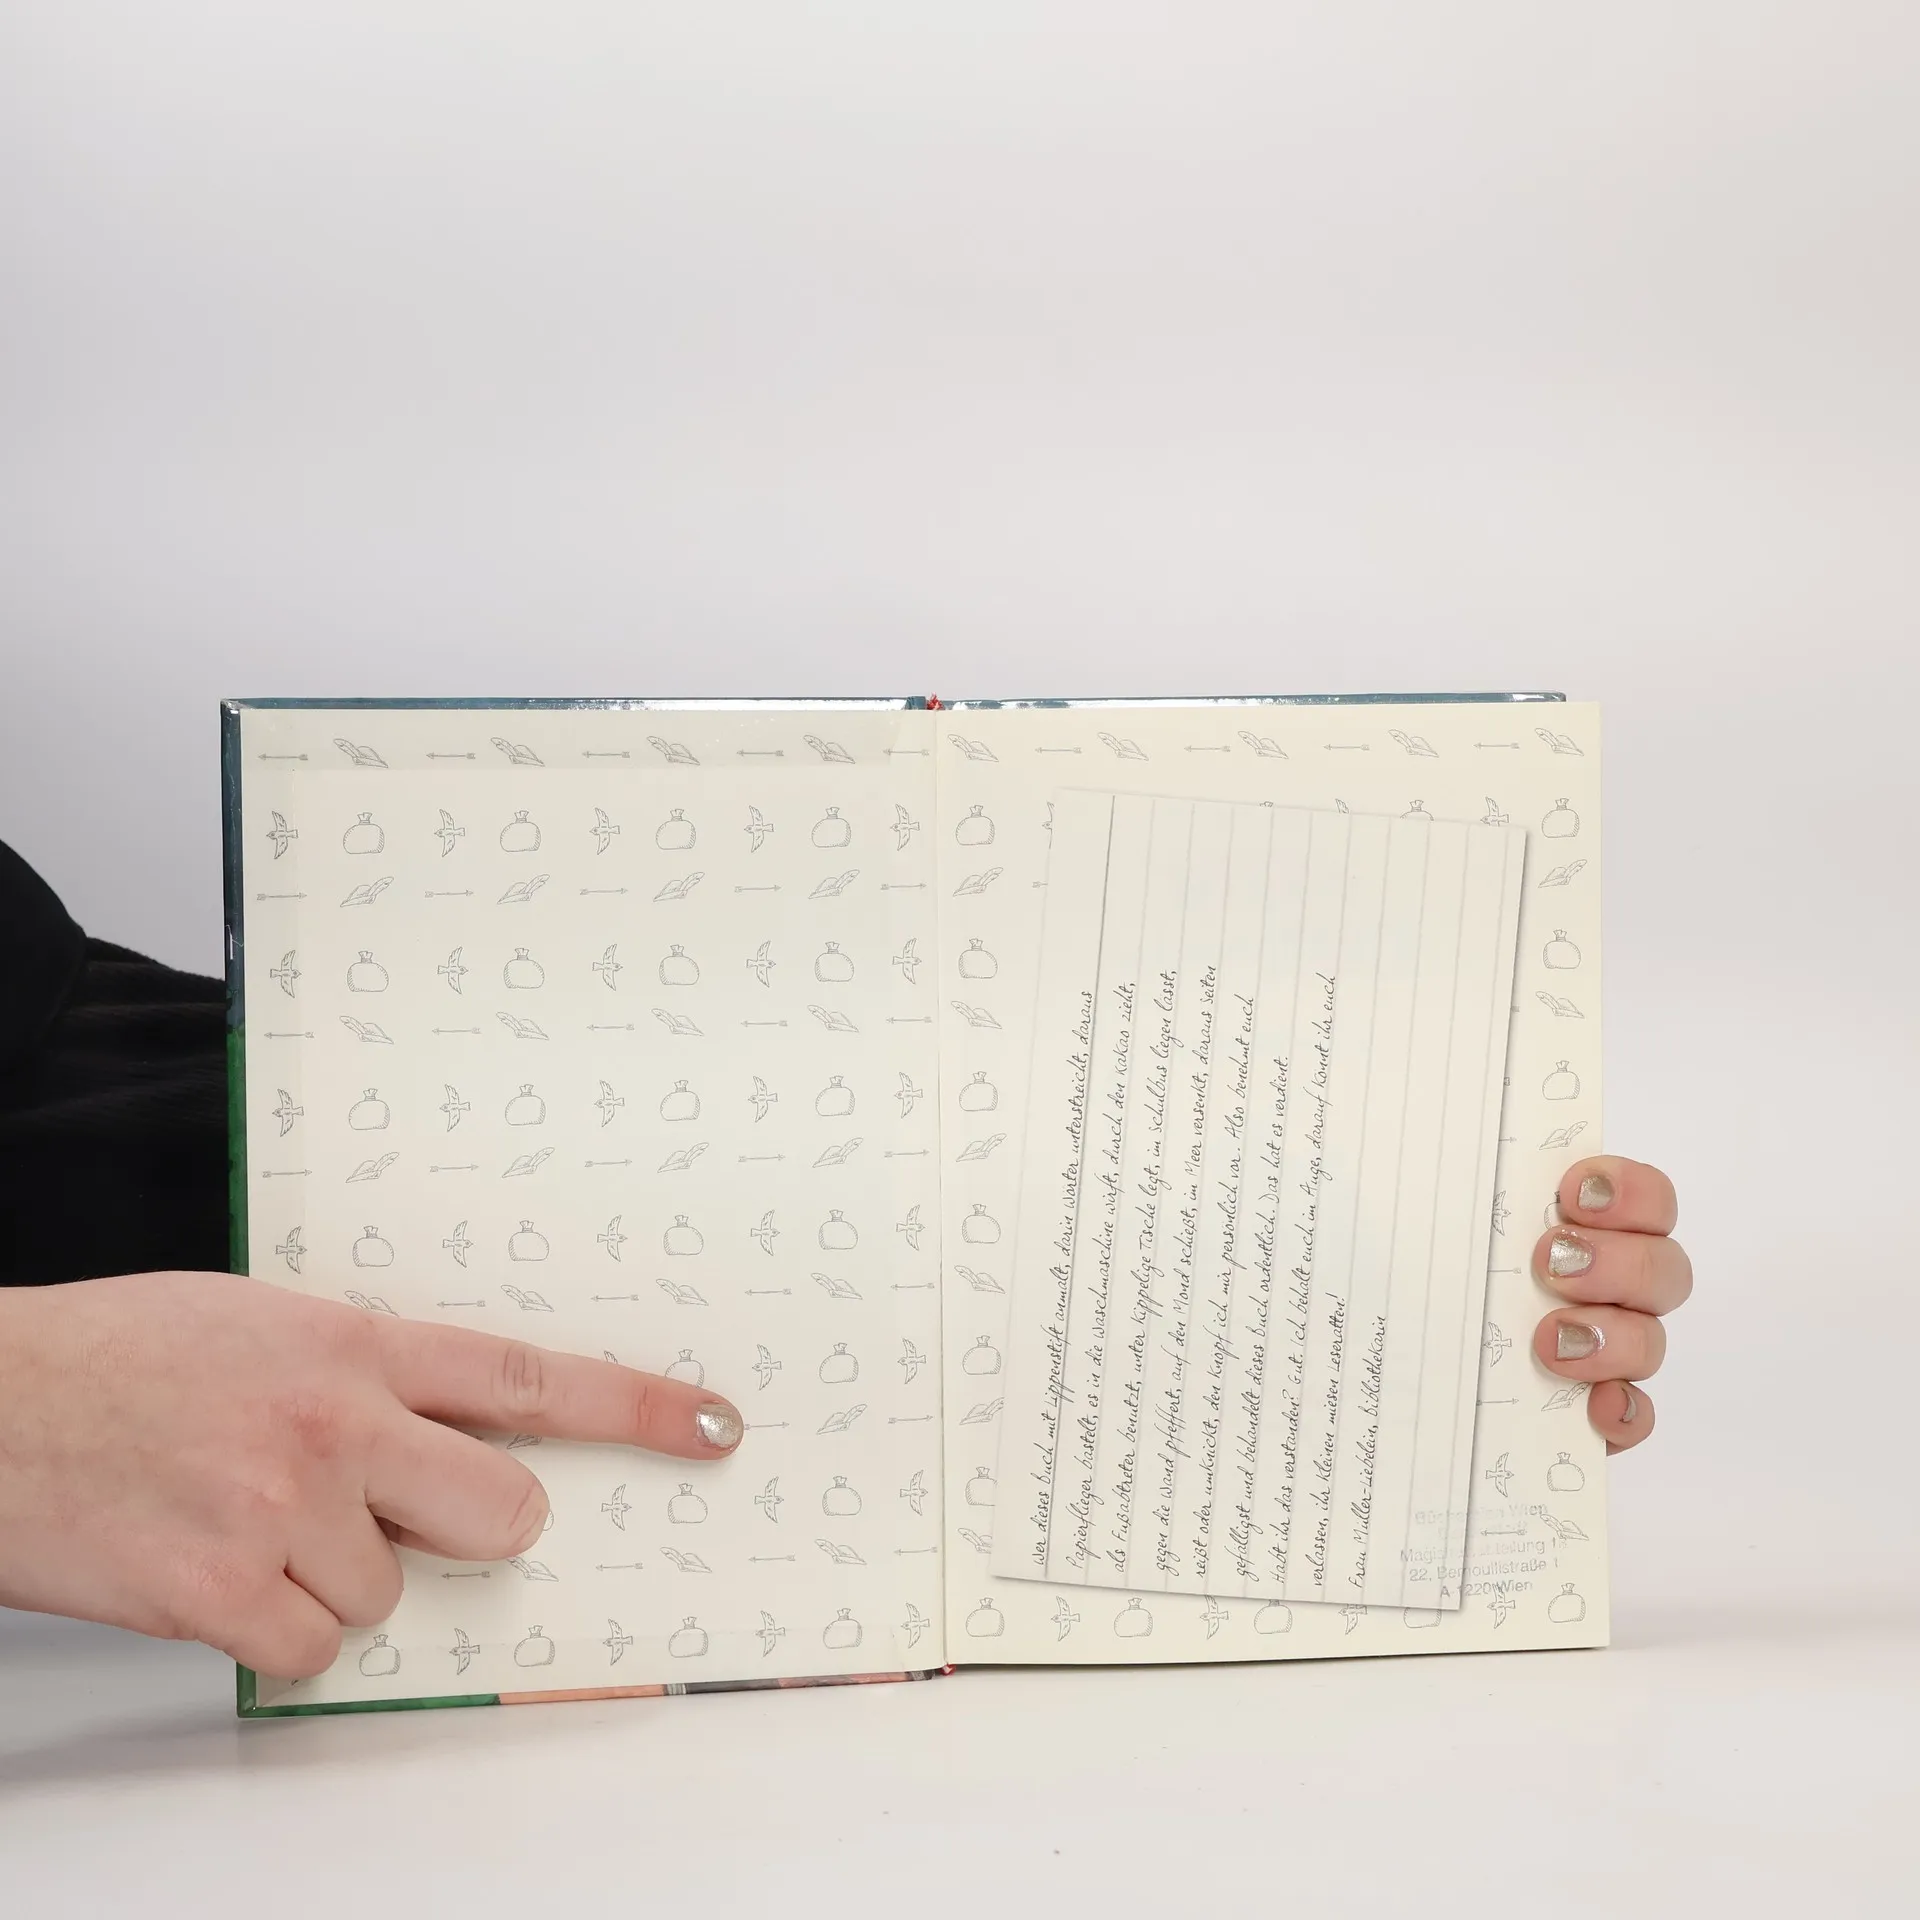 Wer dieses Buch mit Lippenstift anmalt, darin Wörter unterstreicht, daraus
Papierflieger bastelt, es in die Waschmaschine wirft, durch den Kakao zieht,
als Fußabtreter benutzt, unter kippelige Tische legt, im Schulbus liegen lässt,
gegen die Wand pfeffert, auf den Mond schießt, im Meer versenkt, daraus Seiten
reißt oder umknickt, den knöpf ich mir persönlich vor. Also benehmt euch
gefälligst und behandelt dieses Buch ordentlich. Das hat es verdient.
Habt ihr das verstanden? Gut. Ich behalt euch im Auge, darauf könnt ihr euch
verlassen, ihr kleinen miesen Leseratten!
Frau Müller-Liebelein, Bibliothekarin
Wien
22, Bernoullistraße 1
A 1220 Wien